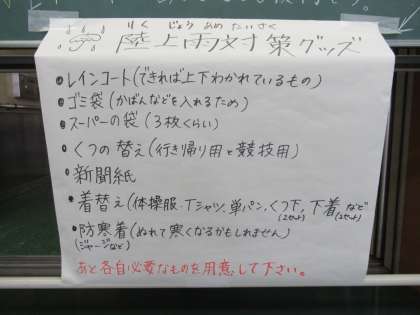 りく じょう あめ たいさく
陸上雨対策グッズ
・レインコート(できれば上下わかれているもの)
・ゴミ袋(かばんなどを入れるため)
・スーパーの袋(3枚くらい)
・くつの替え(行き帰り用と競技用)
・新聞紙
・着替え(体操服.Tシャツ.単パン.くつ下.下着など
(2セット) (2セット)
・防寒着(ぬれて寒くなるかもしれません)
(ジャージなど)
あと各自必要なものを用意して下さい。